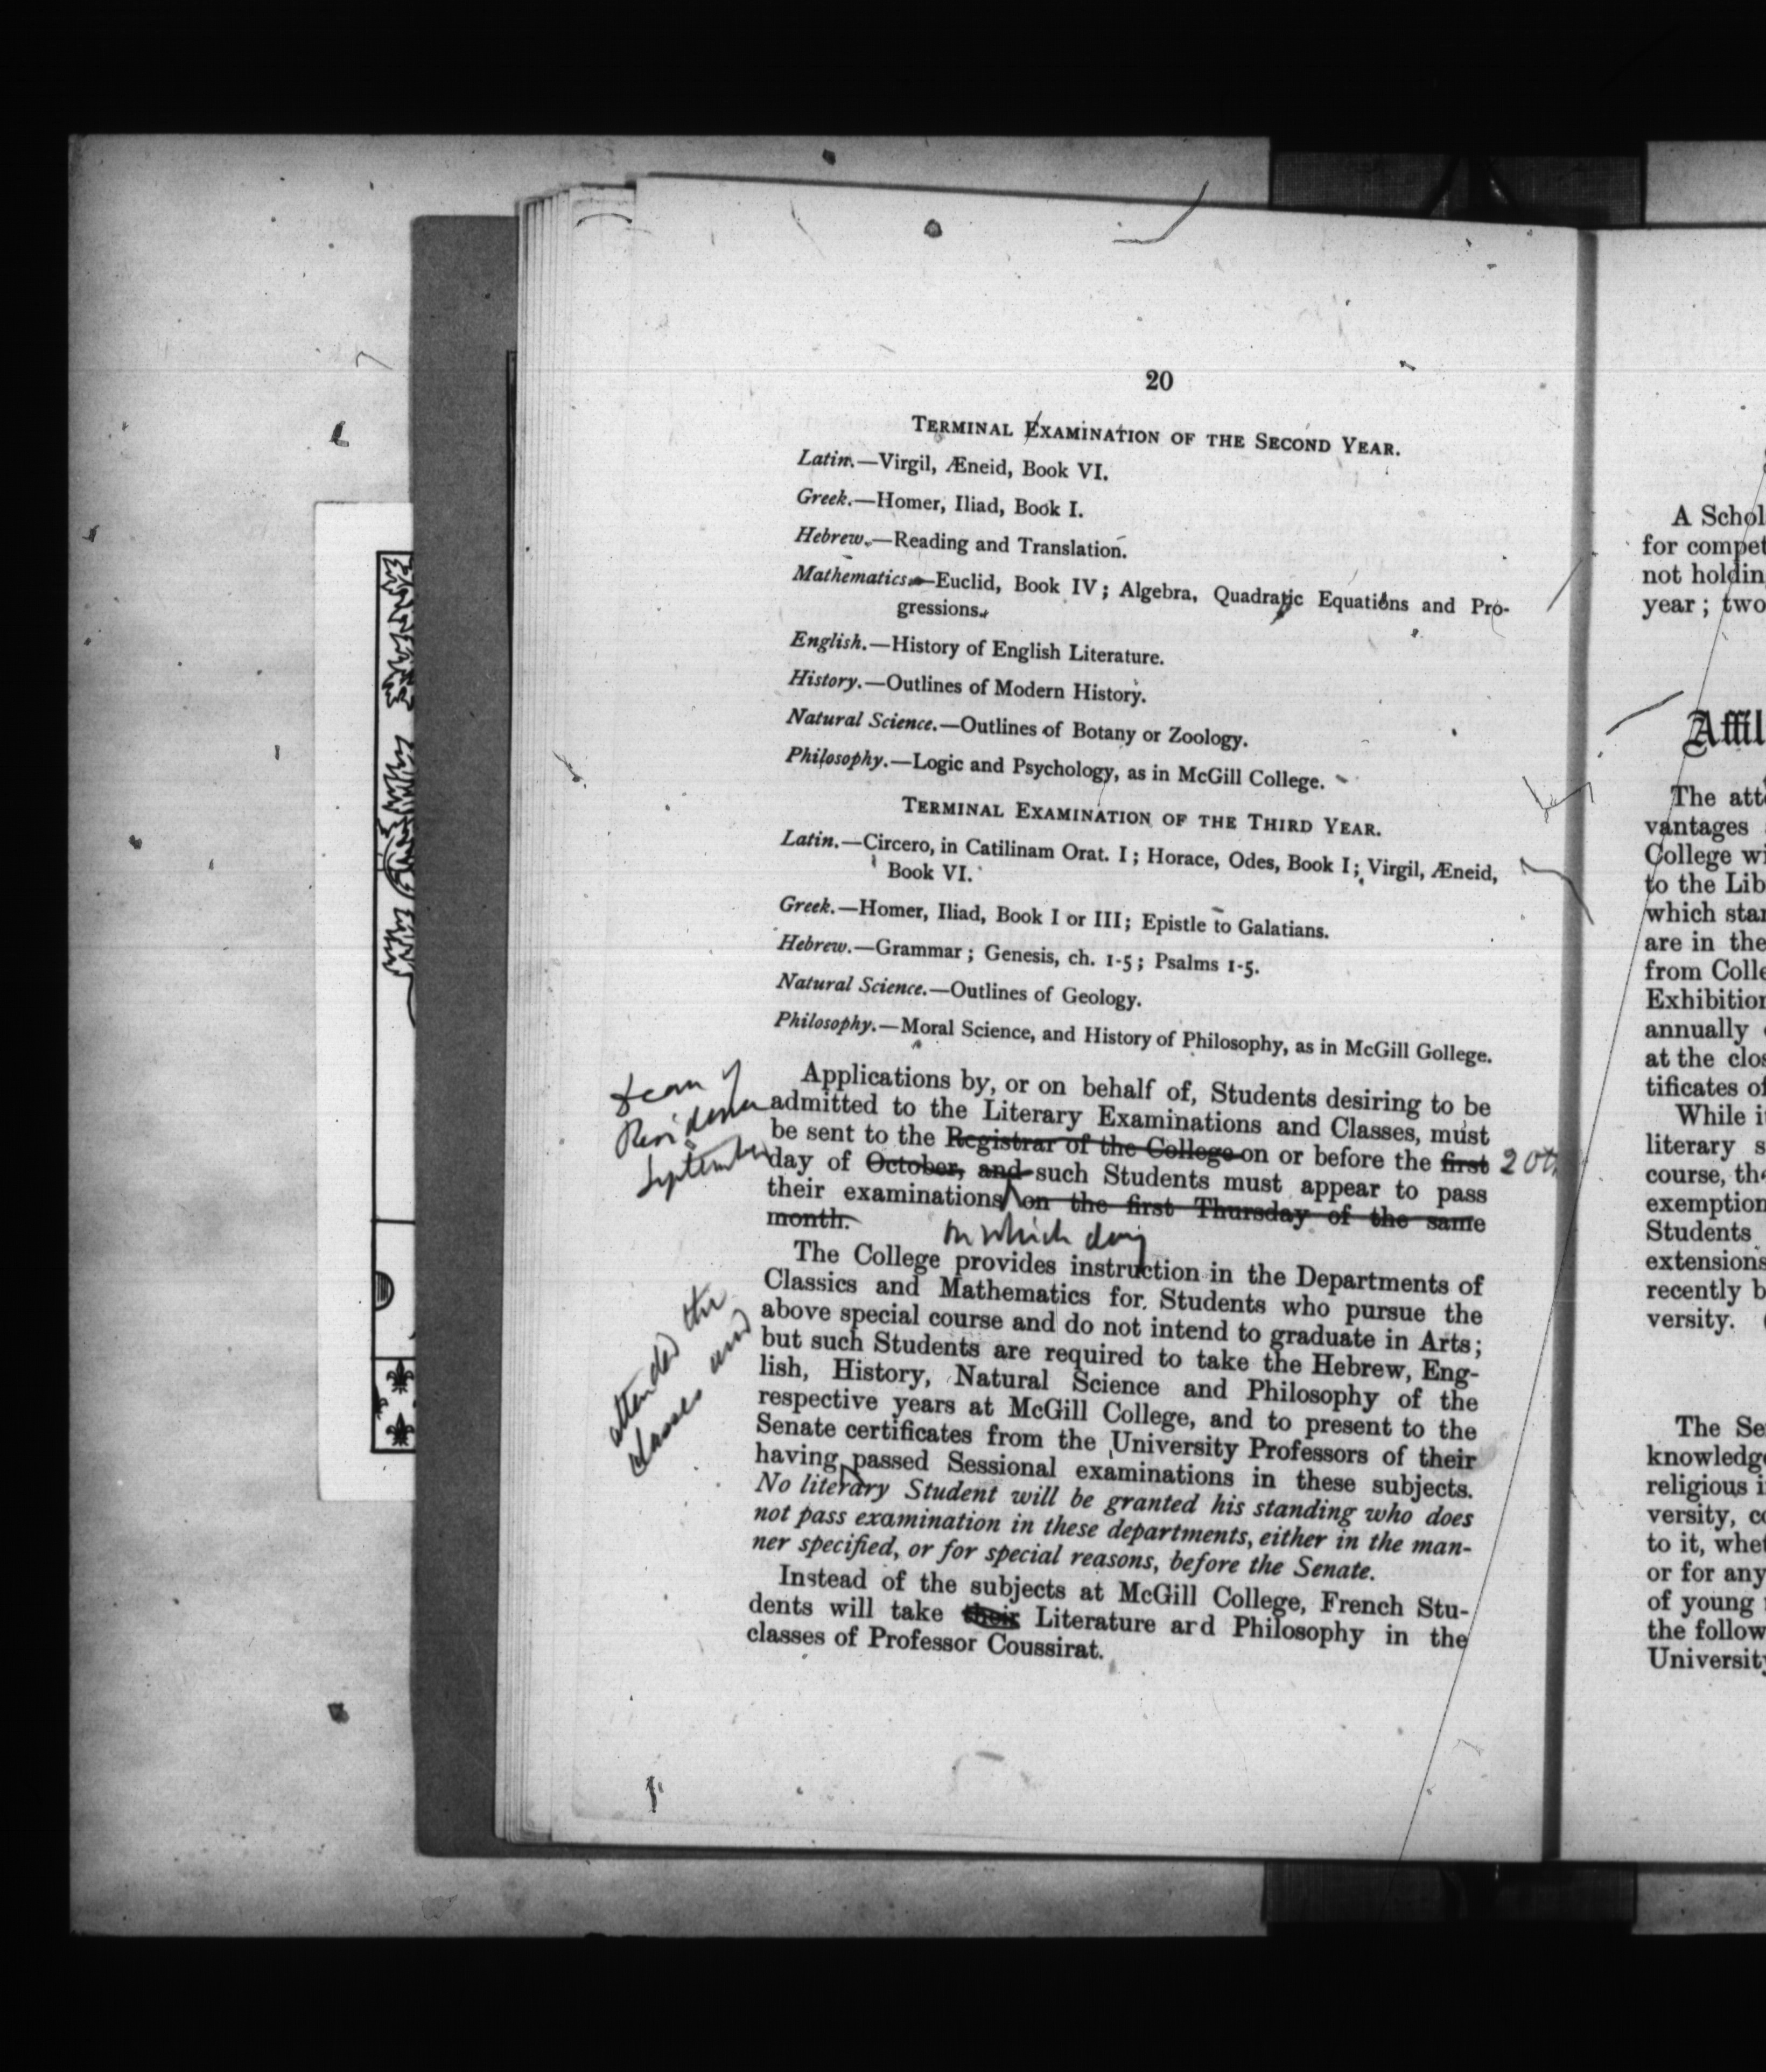 20
TERMINAL EXAMINATION OF THE SECOND YEAR.
Latin.—Virgil, Æneid, Book VI.
Greek.—Homer, Iliad, Book I.
Hebrew.—Reading and Translation.
Mathematics.—Euclid, Book IV; Algebra, Quadratic Equations and Pro-
gressions.
English.—History of English Literature.
History.—Outlines of Modern History.
Natural Science.—Outlines of Botany or Zoology.
Philosophy.—Logic and Psychology, as in McGill College.
TERMINAL EXAMINATION OF THE THIRD YEAR.
Latin.—Circero, in Catilinam Orat. I; Horace, Odes, Book I; Virgil, Æneid,
Book VI.
Greek.—Homer, Iliad, Book I or III; Epistle to Galatians.
Hebrew.—Grammar; Genesis, ch. 1-5; Psalms 1-5.
Natural Science.—Outlines of Geology.
Philosophy.—Moral Science, and History of Philosophy, as in McGill Gollege.
Applications by, or on behalf of, Students desiring to be
admitted to the Literary Examinations and Classes, must
be sent to the Registrar of the College on or before the first 20th
day of October, and such Students must appear to pass
their examinations on the first Thursday of the same
month.
Dean of
Residence
September
on which day
The College provides instruction in the Departments of
Classics and Mathematics for Students who pursue the
above special course and do not intend to graduate in Arts;
but such Students are required to take the Hebrew, Eng-
lish, History, Natural Science and Philosophy of the
respective years at McGill College, and to present to the
Senate certificates from the University Professors of their
having passed Sessional examinations in these subjects.
attended the
classes and
No literary Student will be granted his standing who does
not pass examination in these departments, either in the man-
ner specified, or for special reasons, before the Senate.
Instead of the subjects at McGill College, French Stu-
dents will take their Literature ard Philosophy in the
classes of Professor Coussirat.
A Schol
for compet
not holdin
year; two
Affil
The att
vantages
College wi
to the Lib
which star
are in the
from Colle
Exhibition
annually
at the clos
tificates of
While i
literary s
course, th
exemption
Students
extensions
recently b
versity.
The Se
knowledg
religious i
versity, c
to it, whet
or for any
of young
the follow
University